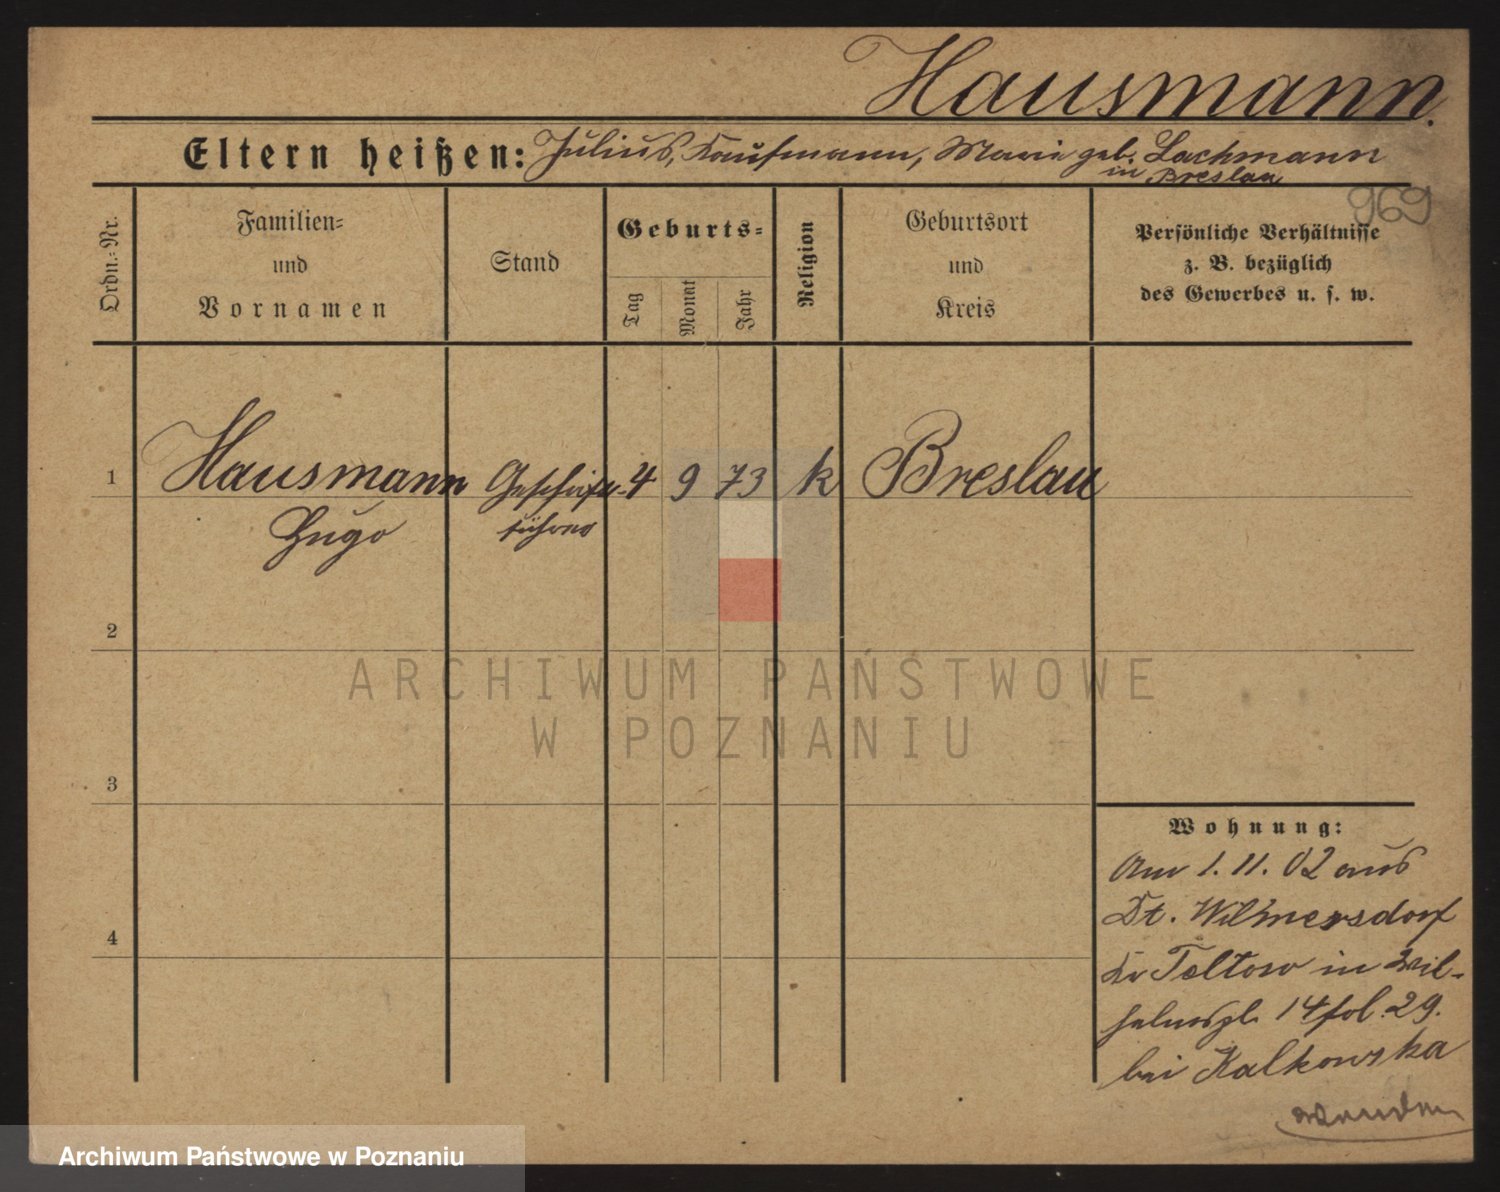 Hausmann.
Eltern heißen: Julius, Kaufmann, Marie geb. Lachmann
in Breslau
969
Ordn.-Nr.
Familien-
und
Vornamen
Stand
Geburts-
Tag
Monat
Jahr
Religion
Geburtsort
und
Kreis
Persönliche Verhältnisse
z. B. bezüglich
des Gewerbes u. s. w.
1 Hausmann Geschäfts- 4 9 73 k Breslau
Hugo führer
2
ARCHIWUM PAŃSTWOWE
W POZNANIU
3
Wohnung:
Am 1. 11. 02 aus
Dt. Wilmersdorf
Kr Teltow in Wil-
helmspl. 14 fol. 29.
bei Kalkowska
wenden
4
Archiwum Państwowe w Poznaniu